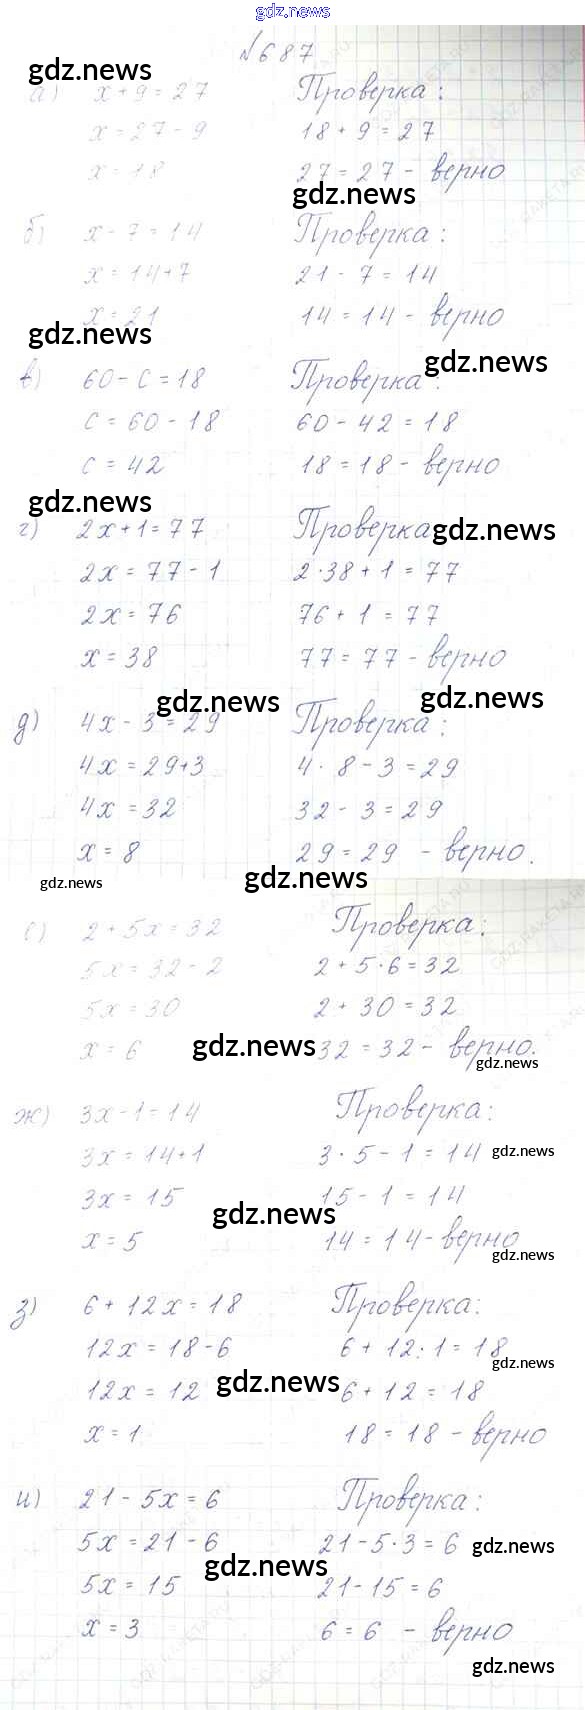 gdz.news
№687
gdz.news
а) x + 9 = 27 Проверка:
x = 27 - 9 18 + 9 = 27
x = 18 27 = 27 - верно
gdz.news
б) x - 7 = 14 Проверка:
x = 14 + 7 21 - 7 = 14
x = 21 14 = 14 - верно
gdz.news
gdz.news
в) 60 - c = 18 Проверка:
c = 60 - 18 60 - 42 = 18
c = 42 18 = 18 - верно
gdz.news
г) 2x + 1 = 77 Проверка gdz.news
2x = 77 - 1 2 · 38 + 1 = 77
2x = 76 76 + 1 = 77
x = 38 77 = 77 - верно
gdz.news gdz.news
д) 4x - 3 = 29 Проверка:
4x = 29 + 3 4 · 8 - 3 = 29
4x = 32 32 - 3 = 29
x = 8 29 = 29 - верно.
gdz.news gdz.news
е) 2 + 5x = 32 Проверка:
5x = 32 - 2 2 + 5 · 6 = 32
5x = 30 2 + 30 = 32
x = 6 gdz.news 32 = 32 - верно.
gdz.news
ж) 3x - 1 = 14 Проверка:
3x = 14 + 1 3 · 5 - 1 = 14 gdz.news
3x = 15 15 - 1 = 14
gdz.news
x = 5 14 = 14 - верно
gdz.news
з) 6 + 12x = 18 Проверка:
12x = 18 - 6 6 + 12 : 1 = 18
gdz.news
12x = 12 gdz.news 6 + 12 = 18
x = 1 18 = 18 - верно
и) 21 - 5x = 6 Проверка:
5x = 21 - 6 21 - 5 · 3 = 6 gdz.news
gdz.news
5x = 15 21 - 15 = 6
x = 3 6 = 6 - верно
gdz.news